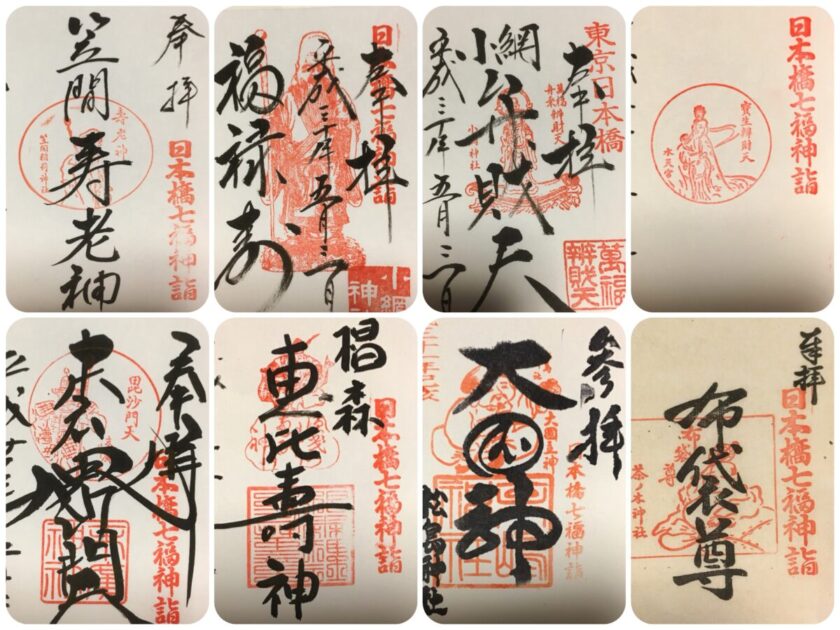 奉拝
笠間
寿老神
寿老神
笠間稲荷神社
日本橋七福神詣
奉拝
福禄寿
平成三十年五月三一日
日本橋七福神詣
小網
神
東京日本橋
奉拝
萬福舟乗弁財天
小網神社
小網弁財天
平成三十年五月三一日
萬福
辨財天
日本橋七福神詣
寶生辨財天
水天宮
奉拝
毘沙門天
日本橋七福神詣
椙森
恵比寿神
日本橋七福神詣
参拝
大国神
大國主神
日本橋七福神詣
松島神社
拝
日本橋七福神詣
布袋尊
布袋尊
茶ノ木神社